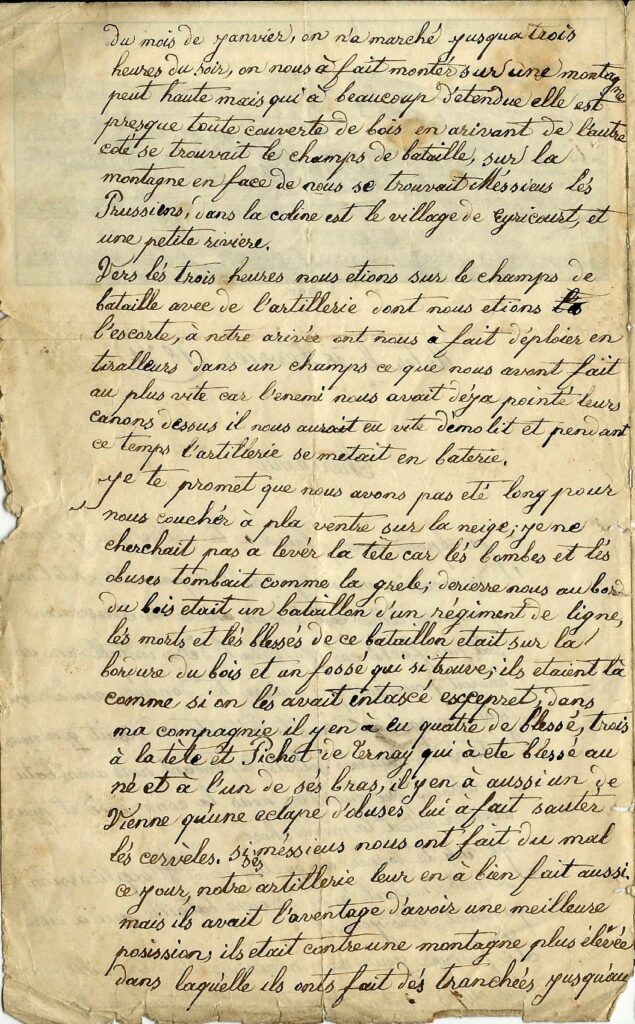 du mois de janvier, on n'a marché jusqua trois
heures du soir, on nous à fait montér sur une montagne
peut haute mais qui à beaucoup d'etendue elle est
presque toute couverte de bois en arivant de l'autre
coté se trouvait le champs de bataille, sur la
montagne en face de nous se trouvait Méssieus lés
Prussiens, dans la coline est le village de Cyricourt, et
une petite riviere.
Vers lés trois heures nous etions sur le champs de
bataille avec de l'artillerie dont nous etions
l'escorte, à notre arivée ont nous à fait déploier en
tiralleurs dans un champs ce que nous avont fait
au plus vite car l'enemi nous avait déja pointé leurs
canons dessus il nous aurait eu vite démolit et pendant
ce temps l'artillerie se metait en baterie.
je te promet que nous avons pas eté long pour
nous couchér à pla ventre sur la neige; je ne
cherchait pas à levér la tète car lés bombes et lés
obuses tombait comme la grele; derierre nous au bord
du bois etait un bataillon d'un régiment de ligne,
lés morts et lés blessés de ce bataillon etait sur la
bordure du bois et un fossé qui si trouve; ils etaient là
comme si on lés avait entascé excepret, dans
ma compagnie il y en à eu quatre de blessé, trois
à la tète et Pichot de Ternay qui à ete blessé au
né et à l'un de sés bras, il y en à aussi un de
Vienne qu'une eclape d'obuses lui à fait sautér
lés cervèles. si cés méssieus nous ont fait du mal
ce jour, notre artillerie leur en à bien fait aussi.
mais ils avait l'aventage d'avoir une meilleure
posission, ils etait contre une montagne plus élevée
dans laquelle ils onts fait dés tranchées jusqu'au